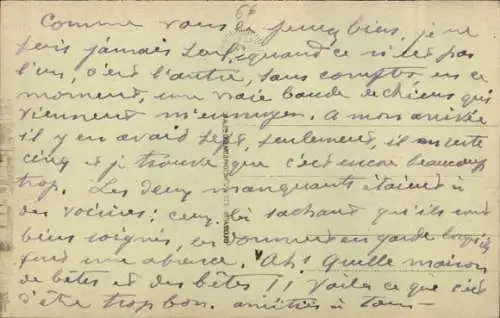 66
Comme vous le pensez bien, je ne
suis jamais seul, quand ce n'est pas
l'un, c'est l'autre, sans compter en ce
moment, une vraie bande de chiens qui
viennent m'ennuyer. A mon arrivée
il y en avait sept, seulement, il en reste
cinq et je trouve que c'est encore beaucoup
trop. Les deux manquants étaient à
des voisins; ceux-ci sachant qu'ils sont
bien soignés, les donnent en garde lorsqu'ils
font une absence. Ah! Quelle maison
de bêtes et des bêtes!! Voilà ce que c'est
d'être trop bon. amitiés à tous